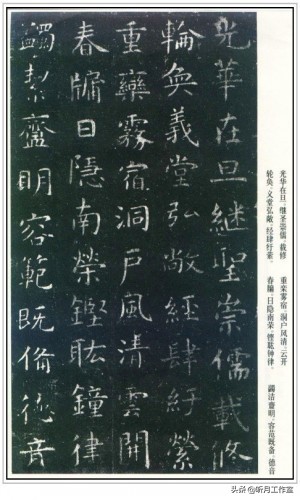 光華在旦繼聖崇儒載修
輪奐義堂弘敞經肆紆縈
重欒霧宿洞戶風清雲開
春牖日隱南榮鏗耾鐘律
蠲絜齍明容範既備德音
光华在旦，继圣崇儒。载修
轮奂，义堂弘敞，经肆纡萦。
重栾雾宿，洞户风清。云开
春牖，日隐南荣。铿耾钟律，
蠲洁齍明。容范既备，德音
头条 @听月工作室